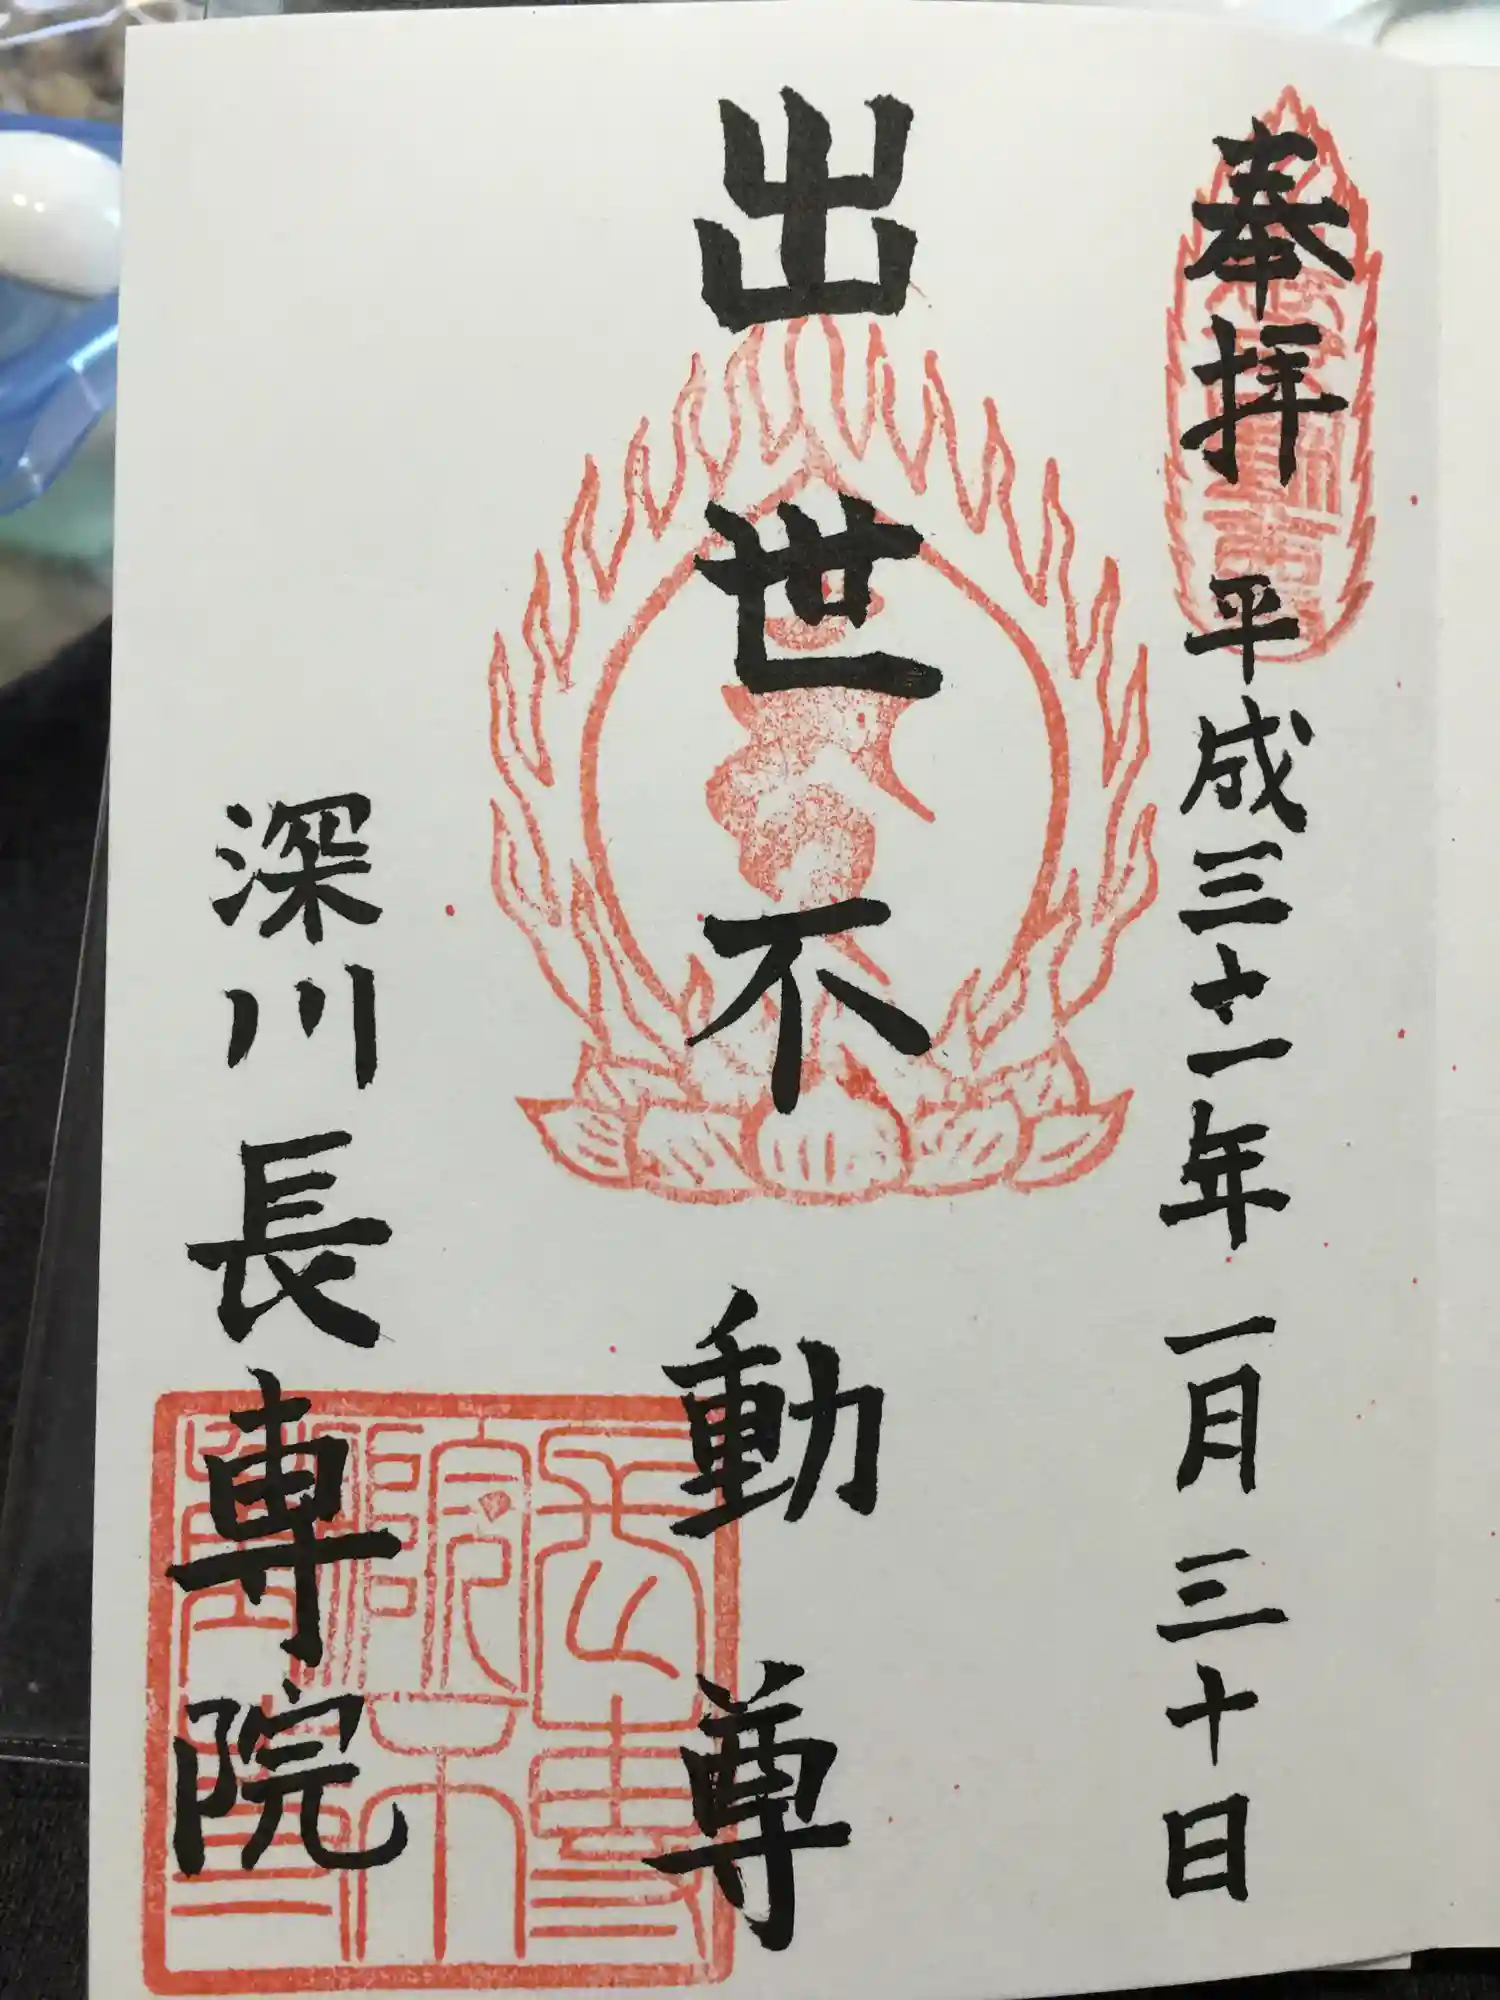 奉拝 平成三十一年一月三十日
出世不動尊
深川長専院